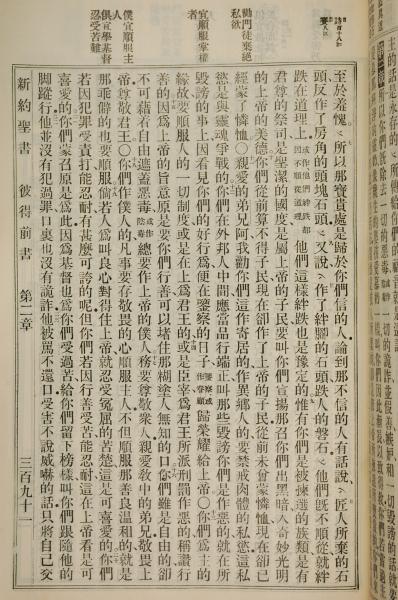 勸門徒棄絕
私欲
宜順服掌權
者
僕宜順服主
人
俱宜學基督
忍受苦難
至於羞愧、所以那寶貴處是歸於你們信的人、論到那不信的人有話說、匠人所棄的石
頭反作了房角的頭塊石頭、又說、作了絆腳的石頭跌人的磐石、他們旣不順從就絆
跌在道理上、或作他們絆跌都因不順從道理他們這樣絆跌也是豫定的惟有你們是被揀選的族類是有
君尊的祭司是聖潔的國度是屬上帝的子民要叫你們宣揚那召你們出黑暗入奇妙光明
的上帝的美德你們從前算不得子民現在卻作了上帝的子民從前未曾蒙憐恤現在卻已
經蒙了憐恤○親愛的弟兄阿我勸你們這作寄居的作異鄉人的要禁戒肉體的私慾這私
慾是與靈魂爭戰的你們在外邦人中間應當品行端正叫那些毀謗你們是作惡的就在所
毀謗的事上因看見你們的好行爲便在鑒察的日子鑒察或作眷顧歸榮耀給上帝○你們爲主的
緣故要順服人的一切制度或是在上爲君王的或是臣宰爲君王所派刑罰作惡的稱讚行
善的因爲上帝的旨意原是要你們行善可以堵住那糊塗人無知的口你們雖是自由的卻
不可藉着自由遮蓋惡毒或作陰毒總要作上帝的僕人務要尊敬衆人親愛敎中的弟兄敬畏上
帝尊敬君王○你們作僕人的凡事要存敬畏的心順服主人不但順服那善良溫和的就是
那乖僻的也要順服倘若人爲叫良心對得住上帝就忍受冤屈的苦楚這是可喜愛的你們
若因犯罪受責打能忍耐有甚麼可誇的呢但你們若因行善受苦能忍耐這在上帝看是可
喜愛的你們蒙召原是爲此因爲基督也爲你們受過苦給你們留下榜樣叫你們跟隨他的
腳蹤行他並沒有犯過罪口裏也沒有詭詐他被罵不還口受害不說威嚇的話只將自己交
新約聖書 彼得前書 第二章 三百九十